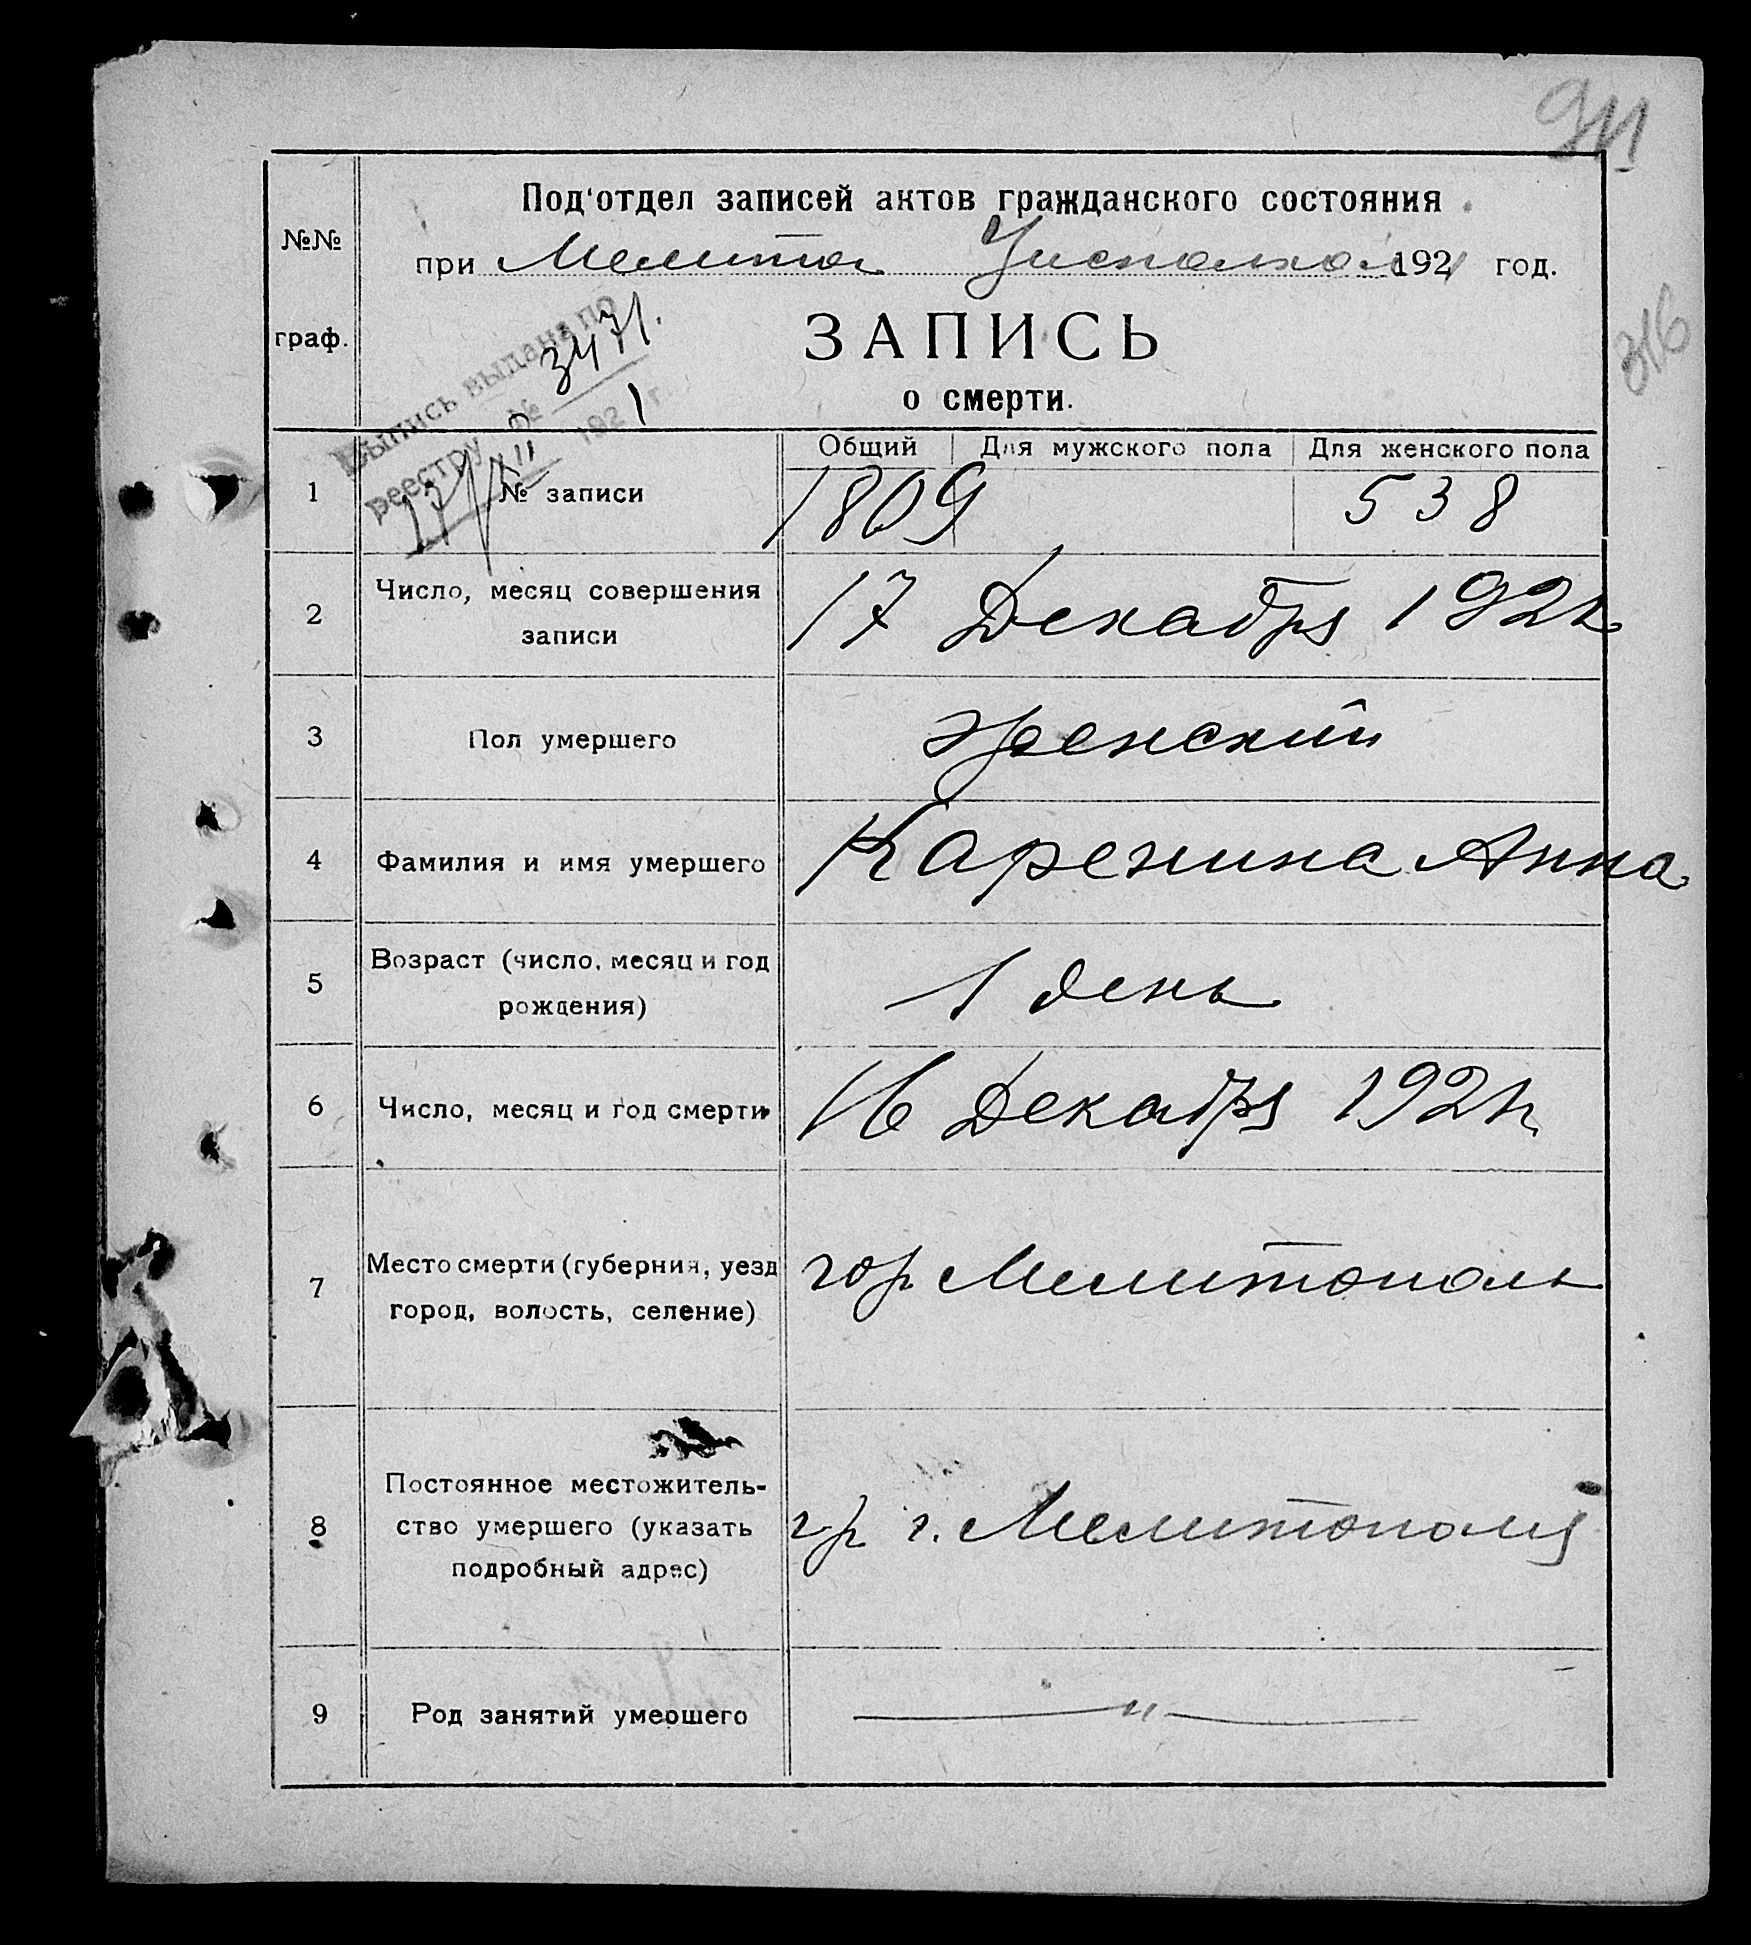 911
Под'отдел записей актов гражданского состояния
№№
при Мелитоп Уисполкоме 1921 год.
316
граф.
ЗАПИСЬ
о смерти.
Выпись выдана по
реестру № 3471.
17/XII 1921 г.
Общий Для мужского пола Для женского пола
1 № записи 1809 538
2 Число, месяц совершения
записи
17 Декабря 1921 г.
3 Пол умершего женский
4 Фамилия и имя умершего Каренина Анна
5 Возраст (число, месяц и год
рождения)
1 день
6 Число, месяц и год смерти 16 Декабря 1921 г.
7 Место смерти (губерния, уезд
город, волость, селение)
гор Мелитополь
8 Постоянное местожитель-
ство умершего (указать
подробный адрес)
гр г. Мелитополя
9 Род занятий умершего — " —